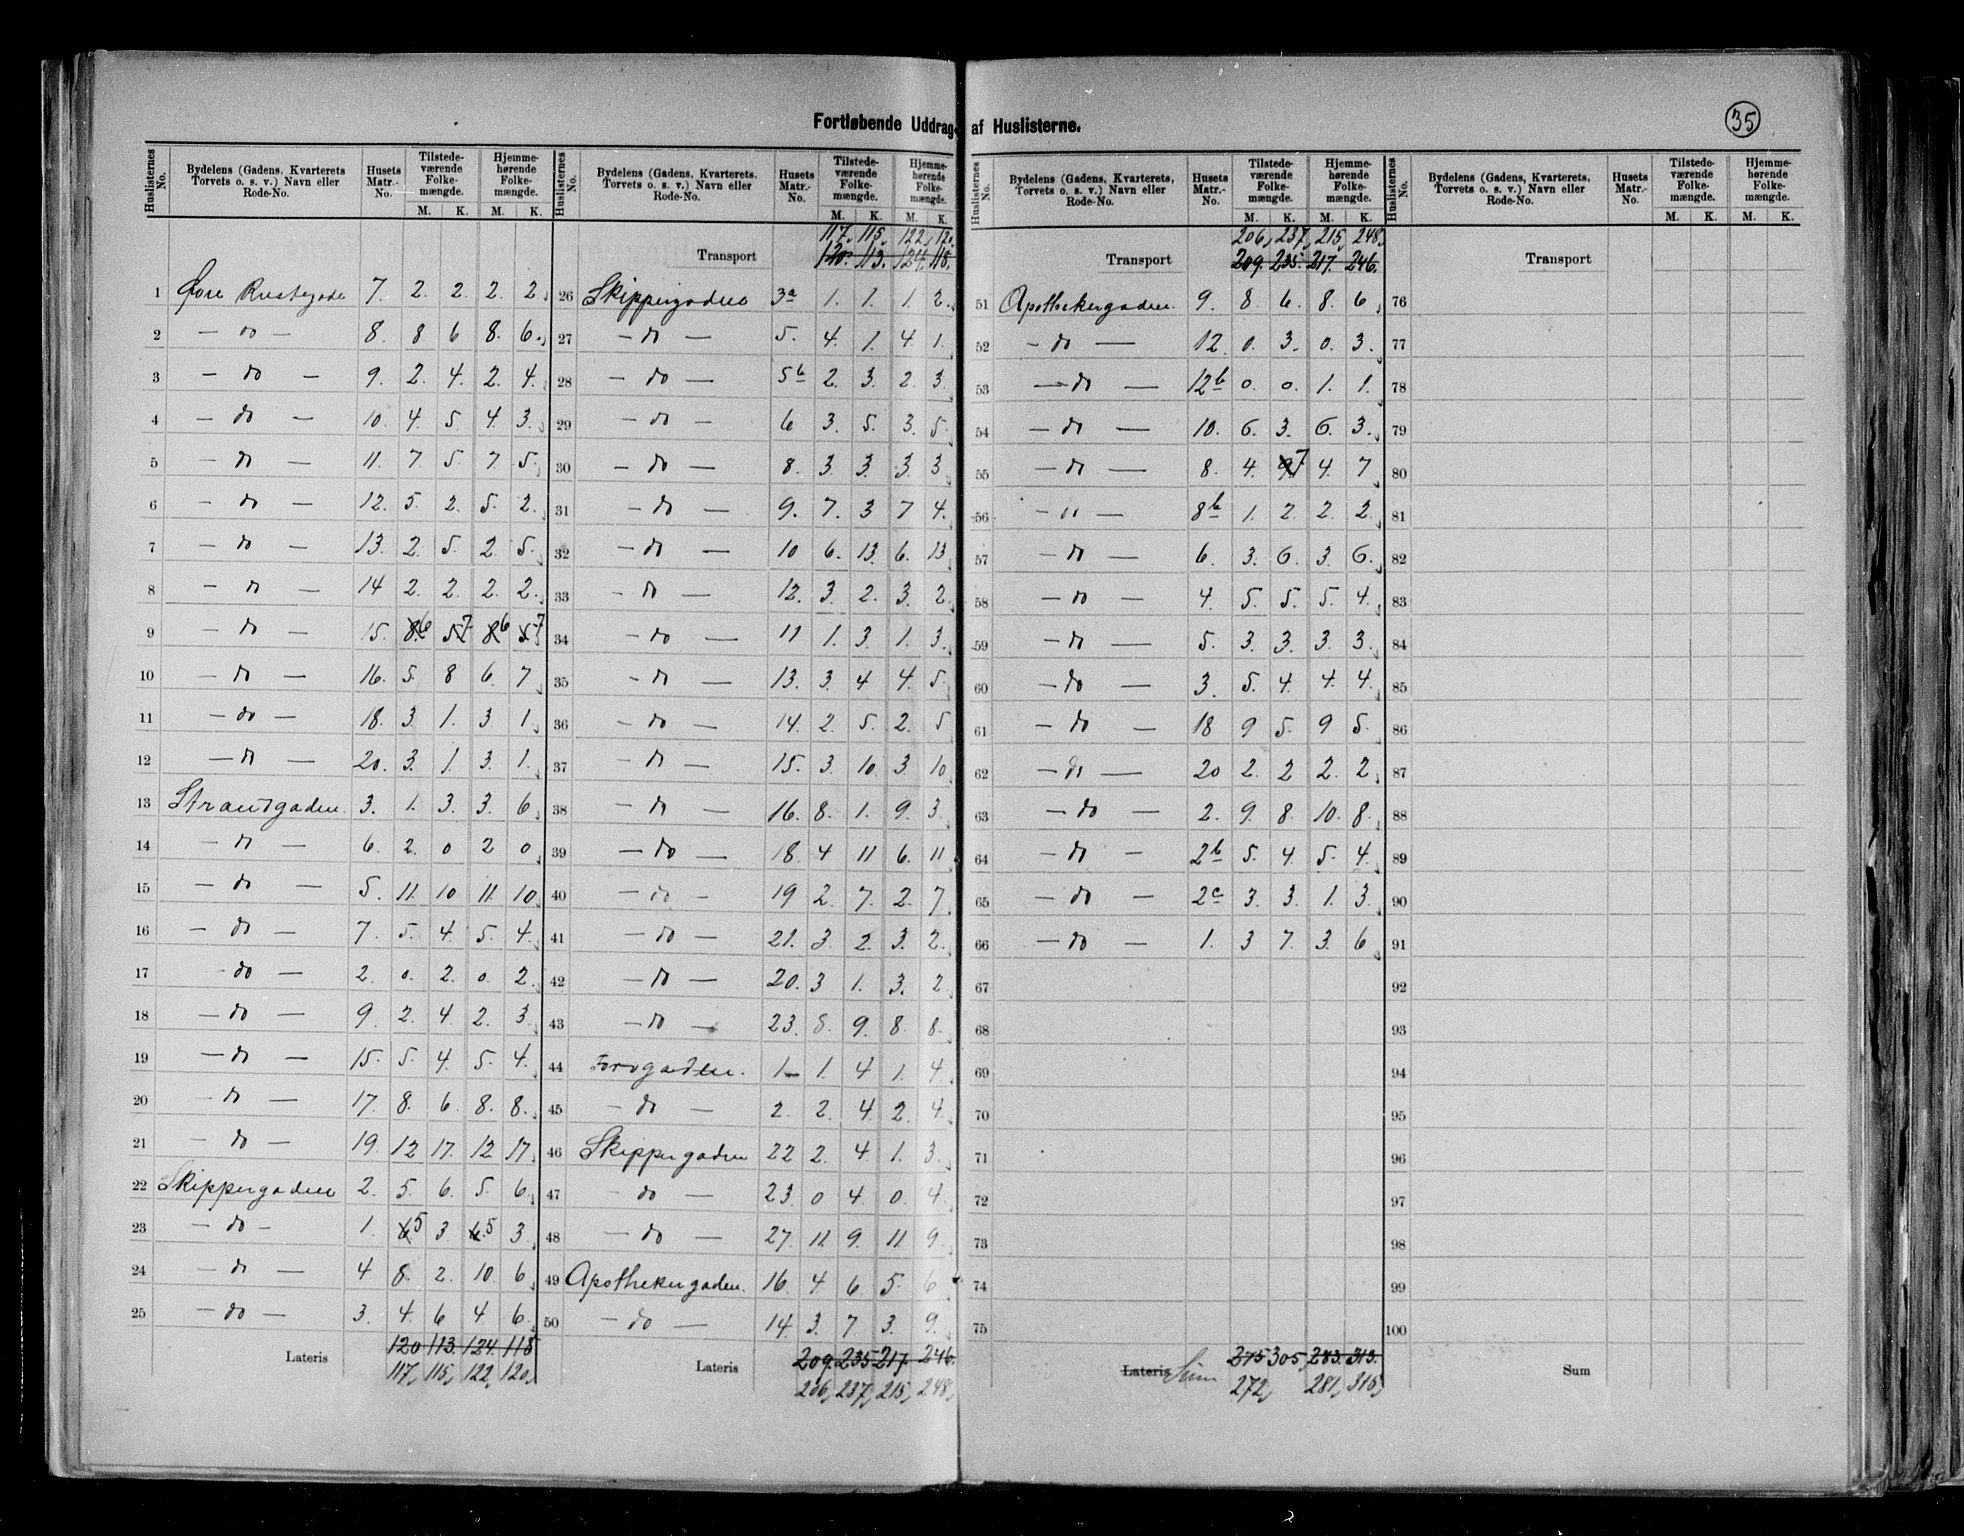 Fortløbende Uddrag af Huslisterne.
35
Huslisternes No. | Bydelens (Gadens, Kvarterets, Torvets o. s. v.) Navn eller Rode-No. | Husets Matr.-No. | Tilstedeværende Folkemængde. M. K. | Hjemmehørende Folkemængde. M. K.
1 Øvre Rustegade 7. 2. 2. 2. 2.
2 — do — 8. 8 6 8. 6.
3 — do — 9. 2. 4. 2. 4.
4 — do — 10. 4. 5. 4. 3.
5 — do — 11. 7. 5. 7. 5.
6 — do — 12. 5. 2. 5. 2.
7 — do — 13. 2. 5. 2. 5.
8 — do — 14 2. 2. 2. 2.
9 — do — 15. 8 6 5 7 8 6 5 7
10 — do — 16. 5. 8 6. 7
11 — do — 18. 3. 1. 3. 1.
12 — do — 20. 3. 1. 3. 1.
13 Strandgaden. 3. 1. 3. 3. 6
14 — do — 6. 2. 0 2 0
15 — do — 5. 11. 10 11. 10
16 — do — 7. 5. 4. 5. 4.
17 — do — 2. 0. 2. 0. 2.
18 — do — 9. 2. 4. 2. 3
19 — do — 15. 5. 4. 5. 4.
20 — do — 17. 8. 6. 8. 8.
21 — do — 19. 12 17. 12 17.
22 Skippergaden 2. 5. 6. 5. 6.
23 — do — 1. 6 5 3 6 5 3.
24 — do — 4 8. 2. 10. 6.
25 — do — 3. 4. 6 4 6.
Lateris 120 113. 124. 118
117, 115, 122, 120,
Huslisternes No. | Bydelens (Gadens, Kvarterets, Torvets o. s. v.) Navn eller Rode-No. | Husets Matr.-No. | Tilstedeværende Folkemængde. M. K. | Hjemmehørende Folkemængde. M. K.
117, 115, 122, 120
Transport 120. 113. 124. 118.
26 Skippergaden 3a 1. 1. 1. 2.
27 — do — 5. 4. 1. 4 1.
28 — do — 5b 2. 3. 2. 3.
29 — do — 6 3. 5. 3. 5.
30 — do — 8. 3. 3. 3. 3
31 — do — 9. 7. 3 7 4.
32 — do — 10 6. 13. 6. 13
33 — do — 12. 3. 2. 3. 2.
34 — do — 11 1. 3 1. 3.
35 — do — 13. 3. 4 4. 5.
36 — do — 14. 2. 5. 2. 5
37 — do — 15. 3. 10. 3. 10.
38 — do — 16. 8. 1. 9. 3.
39 — do — 18. 4 11 6. 11
40 — do — 19 2. 7. 2. 7.
41 — do — 21. 3. 2. 3. 2.
42 — do — 20. 3 1. 3. 2
43 — do — 23. 8. 9. 8 8.
44 1 1. 4 1. 4
45 — do — 2. 2. 4 2. 4.
46 Skippergaden 22 2. 4. 1. 3.
47 — do — 23. 0 4. 0. 4.
48 — do — 27. 11 9. 11. 9.
49 Apothekergaden. 16. 4 6 5. 6
50 — do — 14. 3. 7. 3. 9.
Lateris 209. 235 217. 246.
206, 237, 215, 248,
Huslisternes No. | Bydelens (Gadens, Kvarterets, Torvets o. s. v.) Navn eller Rode-No. | Husets Matr.-No. | Tilstedeværende Folkemængde. M. K. | Hjemmehørende Folkemængde. M. K.
206, 237, 215, 248,
Transport 209. 235. 217. 246.
51 Apothekergaden. 9. 8 6. 8. 6
52 — do — 12. 0. 3. 0. 3.
53 — do — 12b 0. 0. 1. 1.
54 — do — 10. 6. 3. 6. 3.
55 — do — 8. 4. 9 7 4. 7
56 — do — 8b 1. 2. 2. 2.
57 — do — 6. 3. 6. 3 6.
58 — do — 4. 5. 5. 5. 4.
59 — do — 5. 3. 3. 3. 3.
60 — do — 3. 5. 4. 4. 4.
61 — do — 18 9 5. 9 5.
62 — do — 20 2. 2 2. 2
63 — do — 2. 9. 8. 10. 8.
64 — do — 2b 5. 4. 5. 4.
65 — do — 2c 3. 3. 1. 3.
66 — do — 1. 3 7. 3. 6
67
68
69
70
71
72
73
74
75
Lateris Sum 275 305, 283. 313.
272, 281, 315,
Huslisternes No. | Bydelens (Gadens, Kvarterets, Torvets o. s. v.) Navn eller Rode-No. | Husets Matr.-No. | Tilstedeværende Folkemængde. M. K. | Hjemmehørende Folkemængde. M. K.
Transport
76
77
78
79
80
81
82
83
84
85
86
87
88
89
90
91
92
93
94
95
96
97
98
99
100
Sum